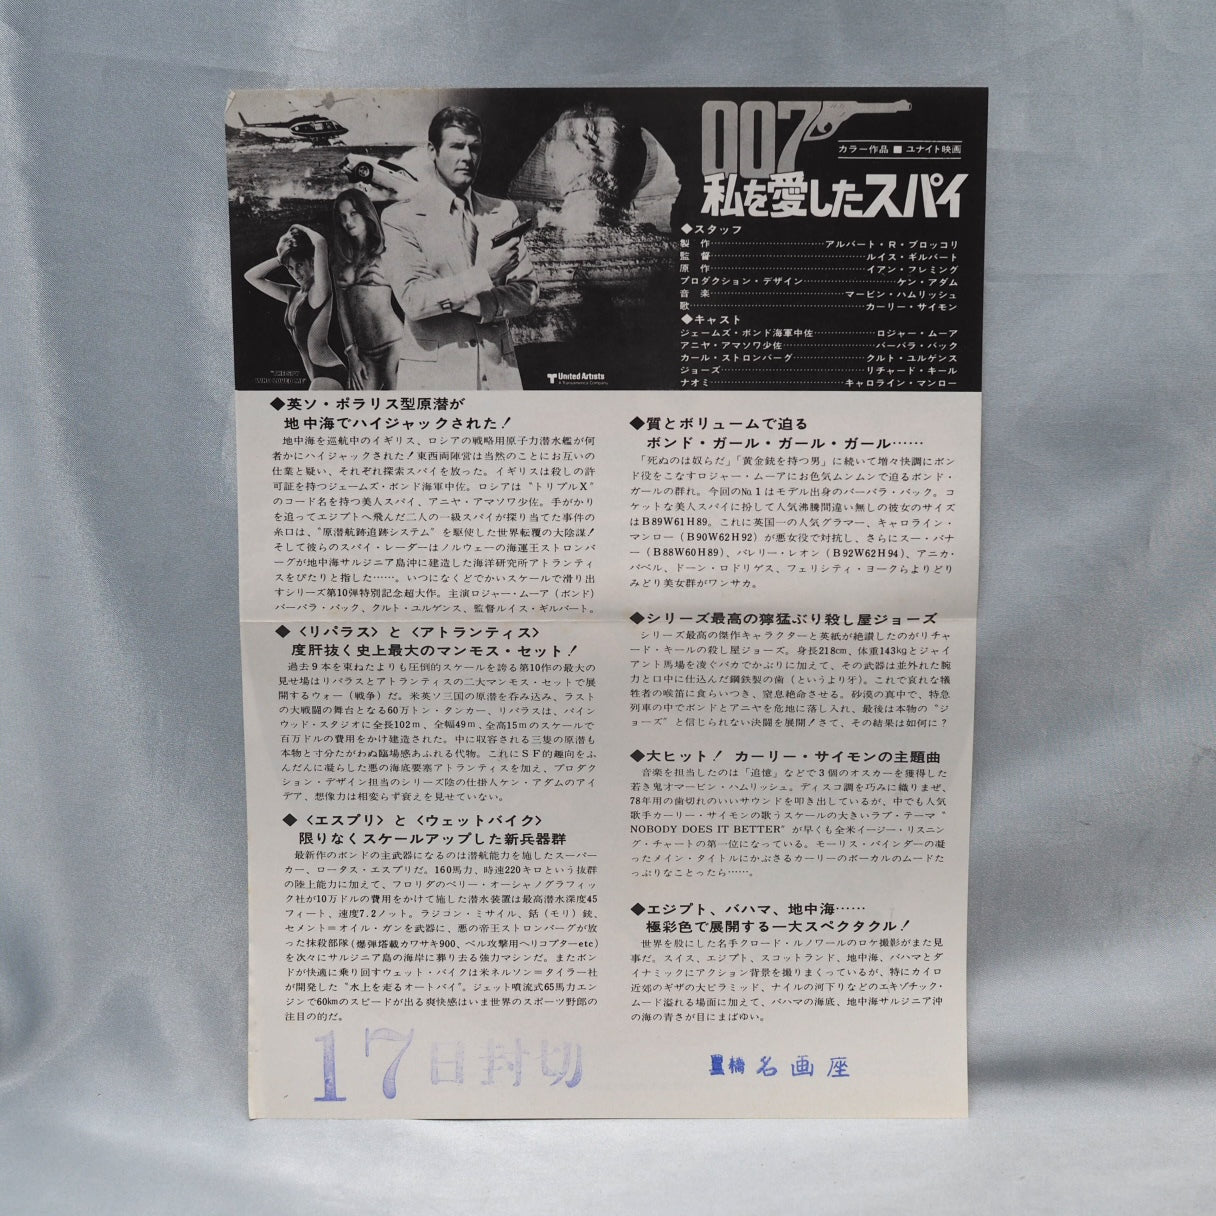 007
カラー作品 ■ ユナイト映画
私を愛したスパイ
◆スタッフ
製作……………………アルバート・R・ブロッコリ
監督……………………ルイス・ギルバート
原作……………………イアン・フレミング
プロダクション・デザイン……………ケン・アダム
音楽……………………マービン・ハムリッシュ
歌………………………カーリー・サイモン
◆キャスト
ジェームズ・ボンド海軍中佐…………ロジャー・ムーア
アニヤ・アマソワ少佐…………バーバラ・バック
カール・ストロンバーグ…………クルト・ユルゲンス
ジョーズ……………………リチャード・キール
ナオミ……………………キャロライン・マンロー
"THE SPY
WHO LOVED ME"
United Artists
A Transamerica Company
◆英ソ・ポラリス型原潜が
地中海でハイジャックされた!
地中海を巡航中のイギリス、ロシアの戦略用原子力潜水艦が何
者かにハイジャックされた!東西両陣営は当然のことにお互いの
仕業と疑い、それぞれ探索スパイを放った。イギリスは殺しの許
可証を持つジェームズ・ボンド海軍中佐。ロシアは"トリプルX"
のコード名を持つ美人スパイ、アニヤ・アマソワ少佐。手がかり
を追ってエジプトへ飛んだ二人の一級スパイが探り当てた事件の
糸口は、"原潜航跡追跡システム"を駆使した世界転覆の大陰謀!
そして彼らのスパイ・レーダーはノルウェーの海運王ストロンバ
ーグが地中海サルジニア島沖に建造した海洋研究所アトランティ
スをぴたりと指した……。いつになくどでかいスケールで滑り出
すシリーズ第10弾特別記念超大作。主演ロジャー・ムーア(ボンド)
バーバラ・バック、クルト・ユルゲンス、監督ルイス・ギルバート。
◆〈リパラス〉と〈アトランティス〉
度肝抜く史上最大のマンモス・セット!
過去9本を束ねたよりも圧倒的スケールを誇る第10作の最大の
見せ場はリパラスとアトランティスの二大マンモス・セットで展
開するウォー(戦争)だ。米英ソ三国の原潜を呑み込み、ラスト
の大戦闘の舞台となる60万トン・タンカー、リパラスは、パイン
ウッド・スタジオに全長102m、全幅49m、全高15mのスケールで
百万ドルの費用をかけ建造された。中に収容される三隻の原潜も
本物と寸分たがわぬ臨場感あふれる代物。これにSF的趣向をふ
んだんに凝らした悪の海底要塞アトランティスを加え、プロダク
ション・デザイン担当のシリーズ陰の仕掛人ケン・アダムのアイ
デア、想像力は相変らず衰えを見せていない。
◆〈エスプリ〉と〈ウェットバイク〉
限りなくスケールアップした新兵器群
最新作のボンドの主武器になるのは潜航能力を施したスーパー
カー、ロータス・エスプリだ。160馬力、時速220キロという抜群
の陸上能力に加えて、フロリダのペリー・オーシャノグラフィッ
ク社が10万ドルの費用をかけて施した潜水装置は最高潜水深度45
フィート、速度7.2ノット。ラジコン・ミサイル、銛(モリ)銃、
セメント=オイル・ガンを武器に、悪の帝王ストロンバーグが放
った抹殺部隊(爆弾塔載カワサキ900、ベル攻撃用ヘリコプターetc)
を次々にサルジニア島の海岸に葬り去る強力マシンだ。またボン
ドが快適に乗り回すウェット・バイクは米ネルソン=タイラー社
が開発した"水上を走るオートバイ"。ジェット噴流式65馬力エン
ジンで60kmのスピードが出る爽快感はいま世界のスポーツ野郎の
注目の的だ。
◆質とボリュームで迫る
ボンド・ガール・ガール・ガール……
「死ぬのは奴らだ」「黄金銃を持つ男」に続いて増々快調にボン
ド役をこなすロジャー・ムーアにお色気ムンムンで迫るボンド・
ガールの群れ。今回の№1はモデル出身のバーバラ・バック。コ
ケットな美人スパイに扮して人気沸騰間違い無しの彼女のサイズ
はB89W61H89。これに英国一の人気グラマー、キャロライン・
マンロー(B90W62H92)が悪女役で対抗し、さらにスー・バナ
ー(B88W60H89)、バレリー・レオン(B92W62H94)、アニカ・
パベル、ドーン・ロドリゲス、フェリシティ・ヨークらよりどり
みどり美女群がワンサカ。
◆シリーズ最高の獰猛ぶり殺し屋ジョーズ
シリーズ最高の傑作キャラクターと英紙が絶讃したのがリチャ
ード・キールの殺し屋ジョーズ。身長218cm、体重143kgとジャイ
アント馬場を凌ぐバカでかぶりに加えて、その武器は並外れた腕
力と口中に仕込んだ鋼鉄製の歯(というより牙)。これで哀れな犠
牲者の喉笛に食らいつき、窒息絶命させる。砂漠の真中で、特急
列車の中でボンドとアニヤを危地に落し入れ、最後は本物の"ジ
ョーズ"と信じられない決闘を展開!さて、その結果は如何に?
◆大ヒット! カーリー・サイモンの主題曲
音楽を担当したのは「追憶」などで3個のオスカーを獲得した
若き鬼才マービン・ハムリッシュ。ディスコ調を巧みに織りまぜ、
78年用の歯切れのいいサウンドを叩き出しているが、中でも人気
歌手カーリー・サイモンの歌うスケールの大きいラブ・テーマ"
NOBODY DOES IT BETTER"が早くも全米イージー・リスニン
グ・チャートの第一位になっている。モーリス・バインダーの凝
ったメイン・タイトルにかぶさるカーリーのボーカルのムードた
っぷりなことったら……。
◆エジプト、バハマ、地中海……
極彩色で展開する一大スペクタクル!
世界を股にした名手クロード・ルノワールのロケ撮影がまた見
事だ。スイス、エジプト、スコットランド、地中海、バハマとダ
イナミックにアクション背景を撮りまくっているが、特にカイロ
近郊のギザの大ピラミッド、ナイルの河下りなどのエキゾチック・
ムード溢れる場面に加えて、バハマの海底、地中海サルジニア沖
の海の青さが目にまばゆい。
17日封切
豊橋 名画座